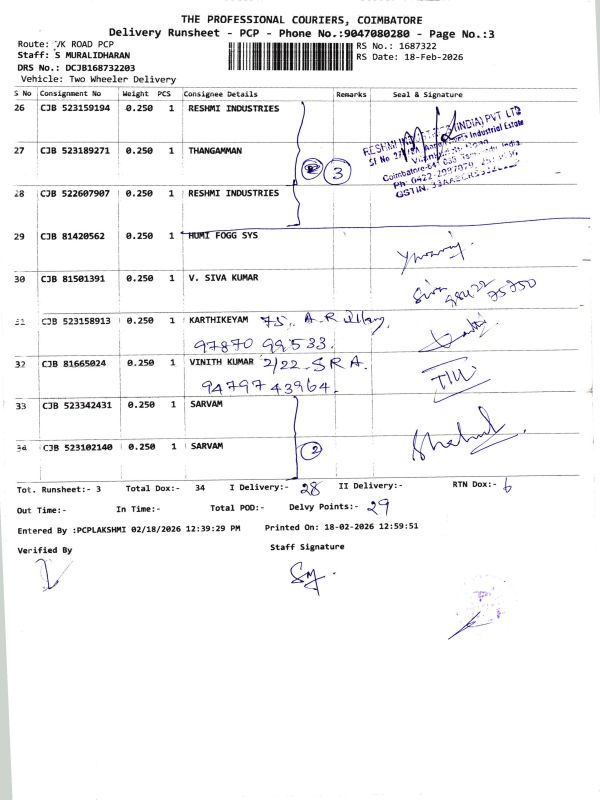 THE PROFESSIONAL COURIERS, COIMBATORE
Delivery Runsheet - PCP - Phone No.:9047080280 - Page No.:3
Route: VK ROAD PCP
RS No.: 1687322
Staff: S MURALIDHARAN
RS Date: 18-Feb-2026
DRS No.: DCJB168732203
Vehicle: Two Wheeler Delivery
S No Consignment No Weight PCS Consignee Details Remarks Seal & Signature
26 CJB 523159194 0.250 1 RESHMI INDUSTRIES
RESHMI (INDIA) PVT LTD
Industrial Estate
27 CJB 523189271 0.250 1 THANGAMMAN
3
Coimbatore
28 CJB 522607907 0.250 1 RESHMI INDUSTRIES
29 CJB 81420562 0.250 1 HUMI FOGG SYS
30 CJB 81501391 0.250 1 V. SIVA KUMAR
Siva
31 CJB 523158913 0.250 1 KARTHIKEYAM 75, A.R
97870 99533.
32 CJB 81665024 0.250 1 VINITH KUMAR 2/22 S R A.
94797 43964.
33 CJB 523342431 0.250 1 SARVAM
34 CJB 523102140 0.250 1 SARVAM
2
Tot. Runsheet:- 3 Total Dox:- 34 I Delivery:- 28 II Delivery:- RTN Dox:- 6
Out Time:- In Time:- Total POD:- Delvy Points:- 29
Entered By :PCPLAKSHMI 02/18/2026 12:39:29 PM Printed On: 18-02-2026 12:59:51
Verified By Staff Signature